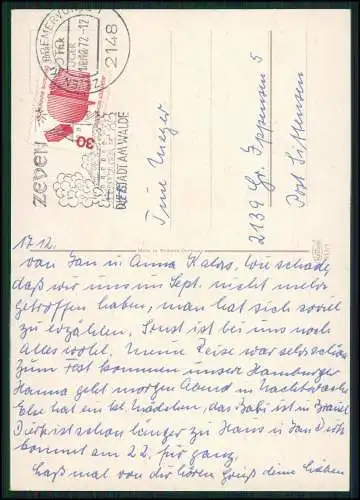 2148 ZEVEN
18.12.72-12
ZEVEN
DIE STADT AM WALDE
30
Tine Meyer
2139 Gr. Ippensen 5
Post Sittensen
17.12.
von Jan u Anna Wie schade,
daß wir uns im Sept. nicht mehr
getroffen haben, man hat sich soviel
zu erzählen. Sonst ist bei uns noch
Alles wohl. Meine Reise war sehr schön
zum kommen unsere Hamburger
Hanna geht morgen Abend in Nachtwache
hat ein Mädchen, das Babi ist in
Dirk ist schon länger zu Haus u Jan Dirk
kommt am 22. für ganz,
Laß mal von dir hören Gruß deine lieben